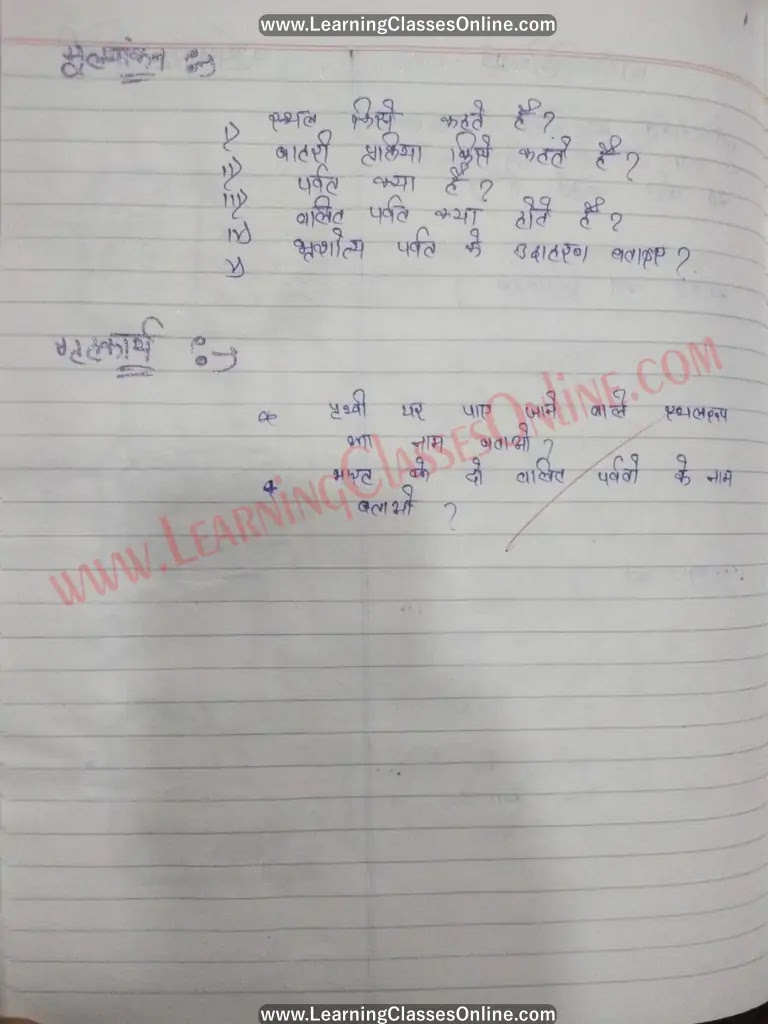 www.LearningClassesOnline.com
मूल्यांकन :-
i) स्थल किसे कहते हैं ?
ii) बाहरी प्रक्रिया किसे कहते हैं ?
iii) पर्वत क्या है ?
iv) वलित पर्वत क्या होते हैं ?
v) भ्रंशोत्थ पर्वत के उदाहरण बताइए ?
गृहकार्य :-
पृथ्वी पर पाए जाने वाले स्थलरूप
का नाम बताओ ?
भारत के दो वलित पर्वतो के नाम
बताओ ?
www.LearningClassesOnline.com
www.LearningClassesOnline.com